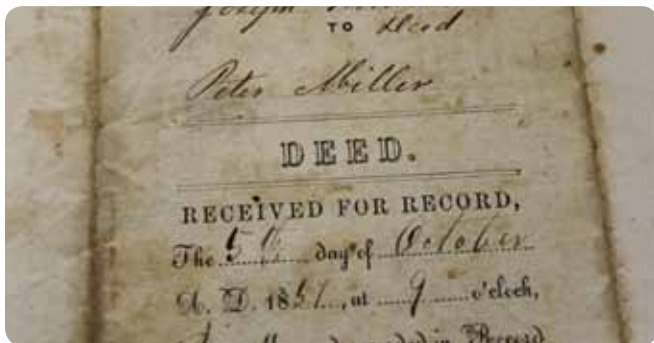 Joseph
TO Deed
Peter Miller
DEED.
RECEIVED FOR RECORD,
The 5th day of October
A. D. 1851, at 9 o'clock,
recorded in Record